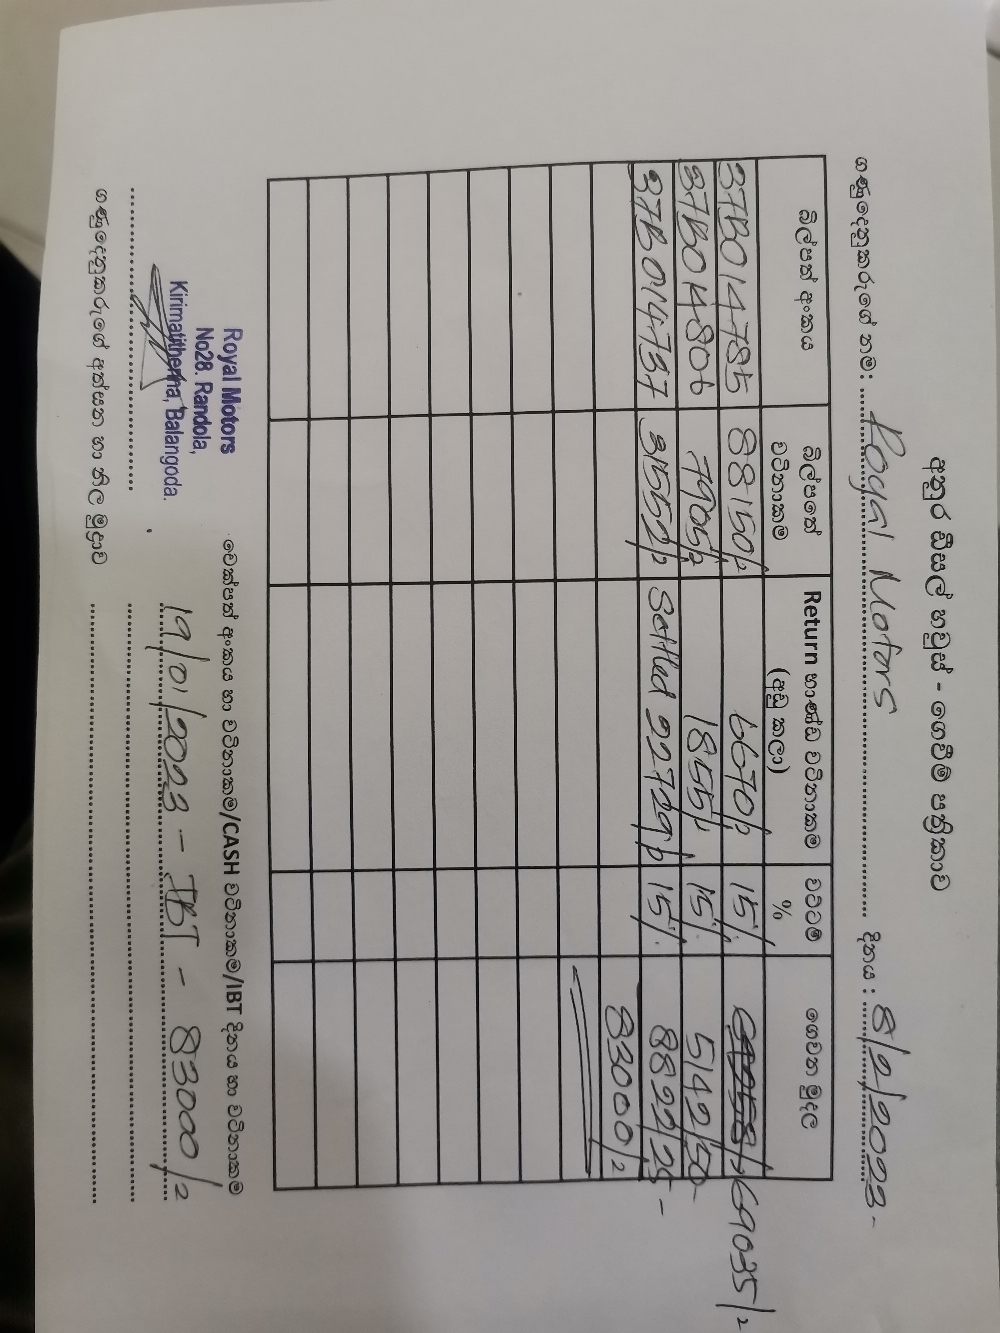 අනුර ඩීසල් හවුස් - ගෙවීම් පත්‍රිකාව
ගණුදෙනුකරුගේ නම: Royal Motors දිනය: 8/2/2023 -
බිල්පත් අංකය බිල්පතේ වටිනාකම Return භාණ්ඩ වටිනාකම (අඩු කලා) වට්ටම් % ගෙවන මුදල
37B014785 88150/= 6670/= 15% 69035/=
37B014806 7905/= 1855/= 15% 5142/50-
37B014737 31552/= Settled 22729/= 15% 8822/25-
83000/=
වෙක්පත් අංකය හා වටිනාකම/CASH වටිනාකම/IBT දිනය හා වටිනාකම
19/01/2023 - IBT - 83000/=
Royal Motors
No28. Randola,
Kirimatithenna, Balangoda.
ගණුදෙනුකරුගේ අත්සන හා නිල මුද්‍රාව